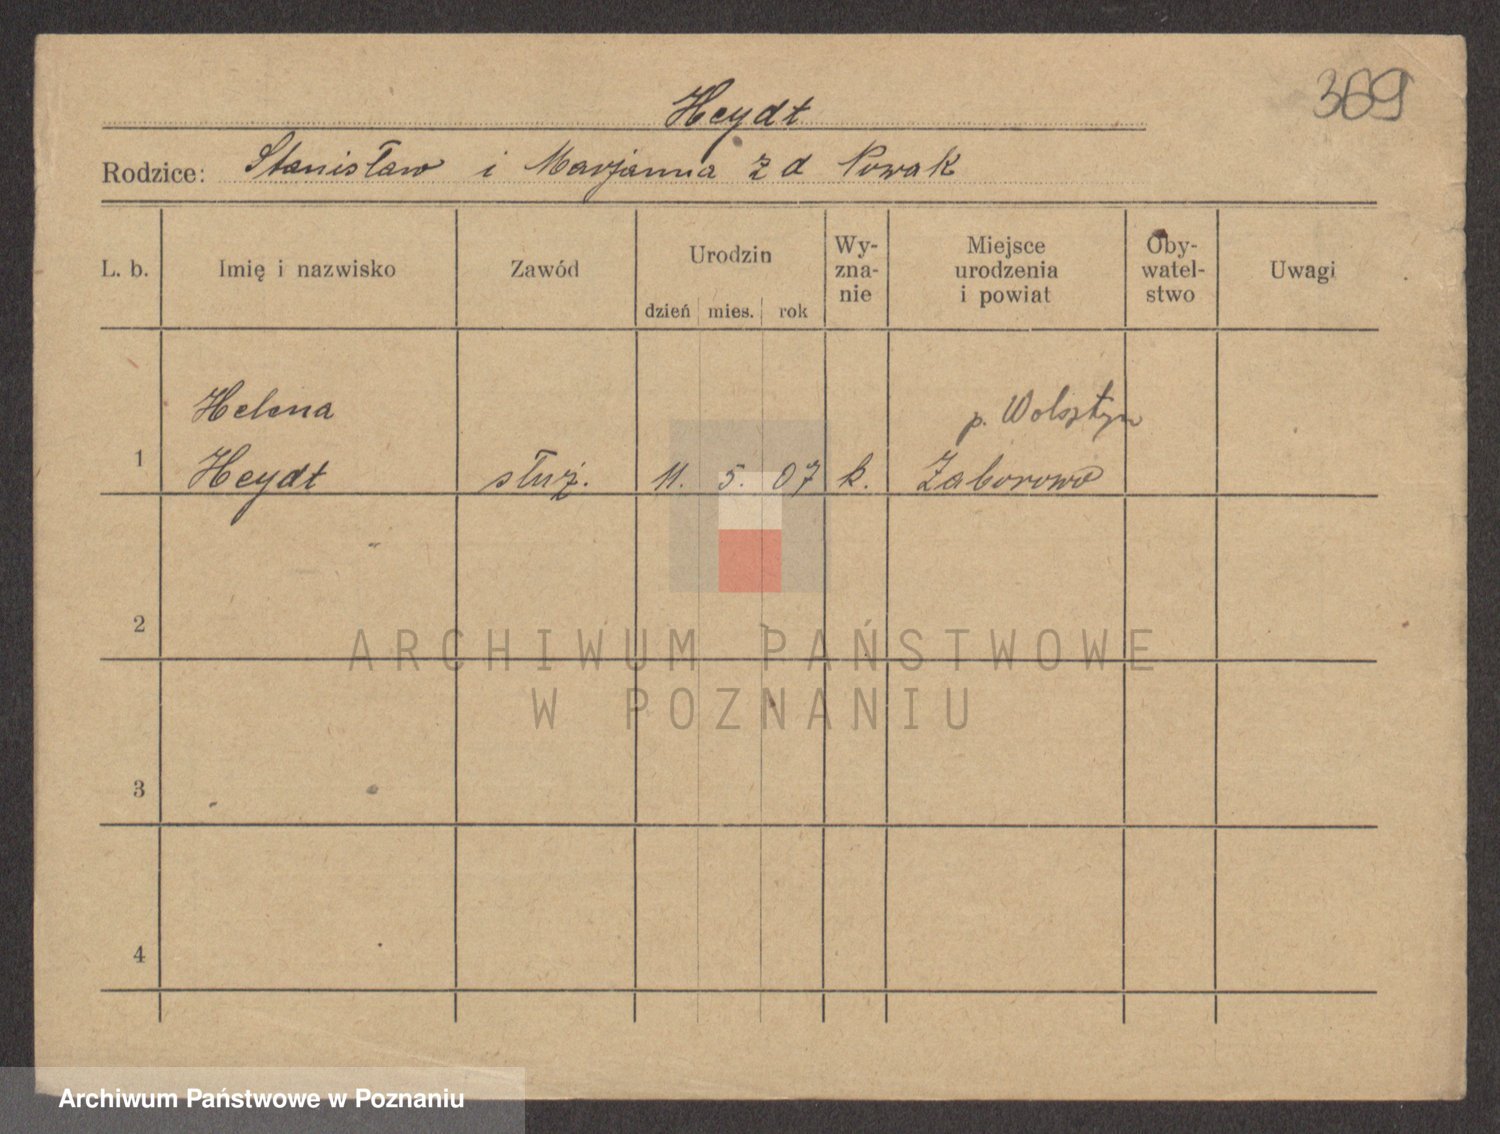 369
Heydt
Rodzice: Stanisław i Marjanna z d Nowak
L. b. Imię i nazwisko Zawód Urodzin Wy-zna-nie Miejsce urodzenia i powiat Oby-watel-stwo Uwagi
dzień mies. rok
Helena p. Wolsztyn
1 Heydt służ. 11. 5. 07 k. Zaborowo
2
ARCHIWUM PAŃSTWOWE
W POZNANIU
3
4
Archiwum Państwowe w Poznaniu